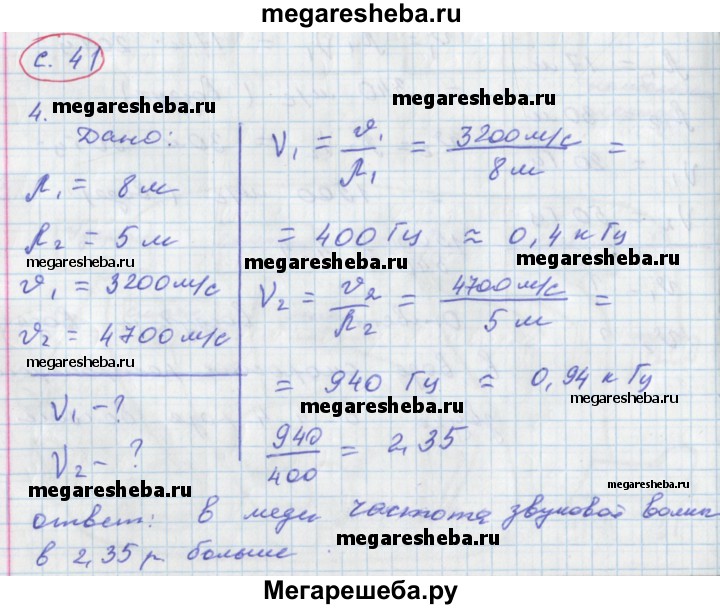 megaresheba.ru
с. 41
megaresheba.ru
megaresheba.ru
4.
Дано:
λ₁ = 8 м
λ₂ = 5 м
megaresheba.ru
ϑ₁ = 3200 м/с
ϑ₂ = 4700 м/с
megaresheba.ru
ν₁ - ?
ν₂ - ?
ν₁ = ϑ₁/λ₁ = 3200 м/с / 8 м =
= 400 Гц ≈ 0,4 кГц
megaresheba.ru
megaresheba.ru
ν₂ = ϑ₂/λ₂ = 4700 м/с / 5 м =
= 940 Гц ≈ 0,94 кГц
megaresheba.ru
megaresheba.ru
940/400 = 2,35
megaresheba.ru
megaresheba.ru
ответ: в меди частота звуковой волны
в 2,35 р больше
megaresheba.ru
Мегарешеба.ру